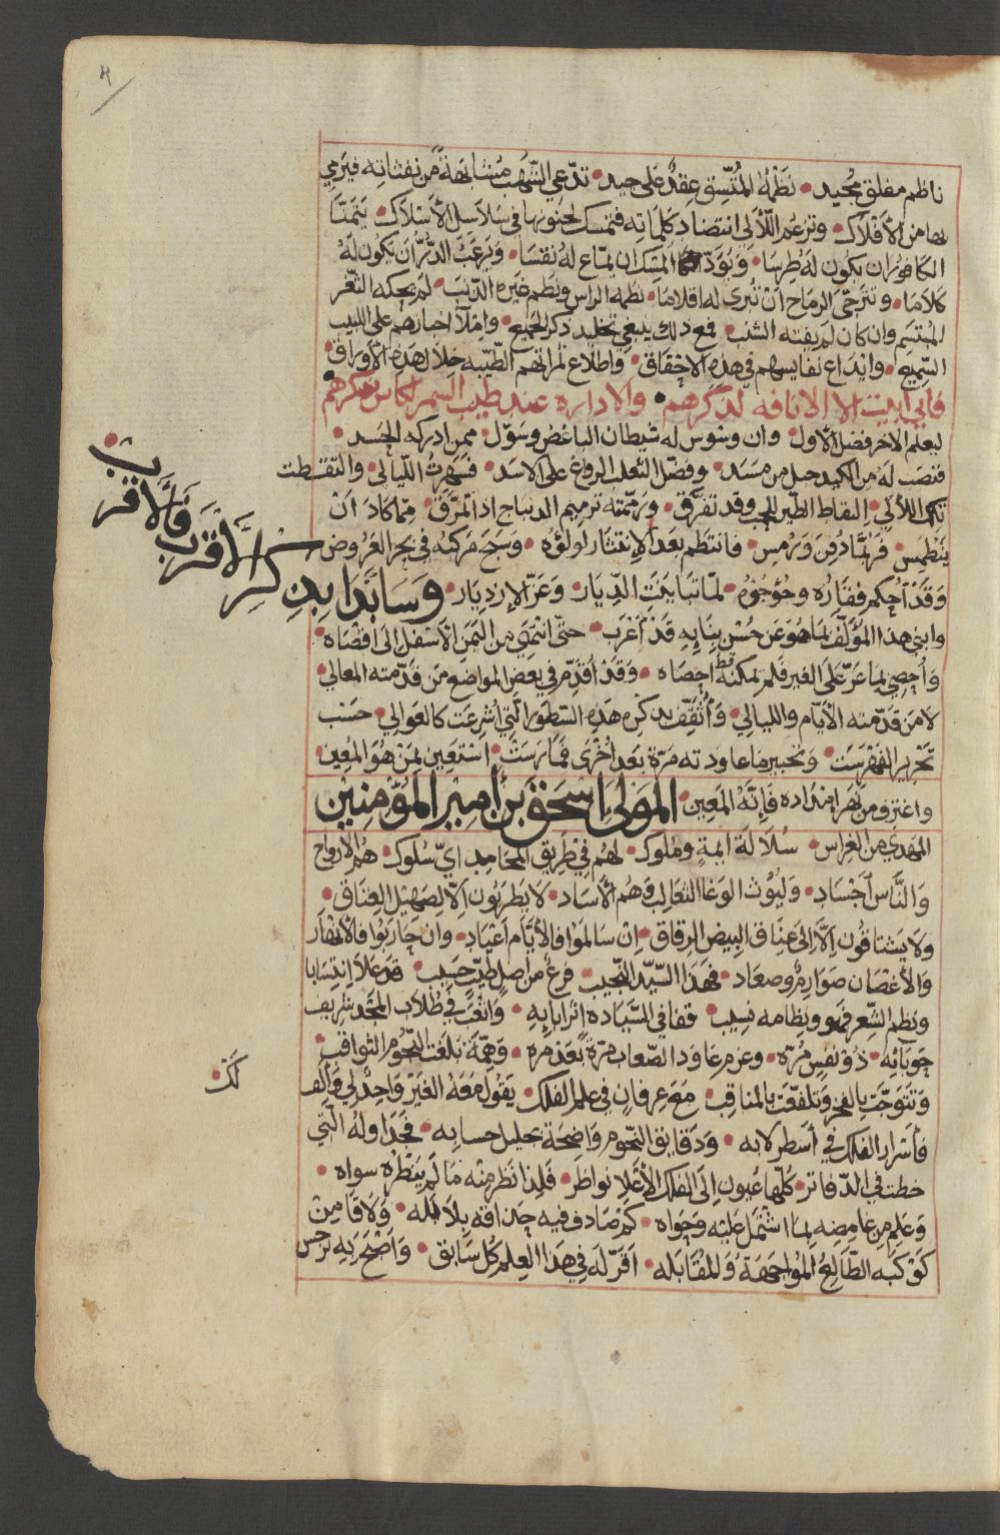 ناظم مفلق مجيد • نَظْمُهُ المُتّسِق عِقدٌ عَلى جيد • تدّعي الشّهُب مُشابَهةً من نفثاته فيَرمي
بها من الأفلاك • وتزعم اللآلى انتضاد كلماته فتمسك لحنونها في سلاسل الأسلاك • يتمنّا
الكافور ان يكون له طِرسَا • وَيَوَدّ المسك ان يماع له نقسَا • وَيرغَبُ الدّرُّ أن يكون لهُ
كلامَا • وتترجّى الرماح ان تُبرى له اقلاما • نظمه الراس ونظم غيره الذنب • لم يحكه الثغر
المبتسم وان كان لم يفته الشنب • فمع ذلك ينبغي تخليد ذكر الجميع • واملا اخبارهم على اللبيب
السّميع • وايداع نفايسهم في هذه الاحقاق • واطلاع ثمراتهم الطّيّبه خلال هذه الأوراق •
فاني ابيت الا الانافه لذكرهم • والاداره عند طيب السمر لكاس شكرهم
ليعلم الاخر فضل الأول • وان وسوس له شيطان الباغض وسَوّل • ممن ادركه الحسد •
فنصب له من الكيد حبل من مسد • وفضّل الثعلب الرواغ على الاسد • فسَهِرتُ اللّيالي • والتقطت
تلك اللآلي • التقاط الطّير الحب وقد تفرّق • ورمّمته ترميم الديباج اذا تمزّق • ممّا كادَ انْ
ينطمس • فربّمَا دُفِن وَرُمِس • فانتظم بعد الانتثار لولؤه • وسَبَح مركبُه في بحر العَروض
وَقَدْ أحكم فقارُه وجؤجؤه • لمّا تباينَتِ الدّيار • وَعَزّ الازديَار • وَسَابَدَا بِذِكرِ الأقرَب فالأقرَب •
وابنى هذا المؤلّف بما هو عَن حُسْن بِنَايِهِ قَدْ أغْرَب • حتّى انتهى من اليَمَن الاسفل الى اقصَاه •
وَأحصِي بما عَزّ علَى الغير فلم يمكنه قط احصَاه • وَقَدْ أقدّم في بَعض المواضع من قدّمته المعالي •
لا من قَدّمته الأيّام والليالي • وَأثقِّف بذكره هذه السّطور الّتي أشرِعَت كالعَوالي • حسَب
تحرير الفهرسَت • وتحبير ما عاودته مرّة بَعد أخْرى فمَا رسَتْ • استَعين بمَنْ هُوَ المُعِين •
واغترف من نهر امدَاده فَإنّهُ المَعِين • المَولى اسحق بن أمير المؤمنين
المهدي من الغِراس • سُلَالَة ايمة وملوك • لهُم في طريق المحَامِد ايّ سُلوك • هُم الأرواح
وَالنّاس أجْسَاد • وَليُوث الوَغا الثعَالب وَهُم الأسَاد • لا يَطرَبون إلّا لِصَهِيل العِتاق •
ولا يَشتاقُون إلّا إلى عِناق البِيض الرِقاق • إن سَالمَوا فالأيّام أعيَاد • وان حَاربُوا فالأنهَار
وَالأغصَان صَوَارم وصعَاد • فهَذَا السّيّد النّجيب • فرعٌ من اصلٍ طيّب حَسِيب • قد عَلا إنتِسَابا
ونظم الشّعر فهو ونظامه نسيب • قفا في السّيَاده إثر ابايه • وَاتْعَبَ في طلاب المَجْد شريف
حَوبَائه • ذُو نفسٍ مُرّه • وعزم عَاوَد الصّعاب مَرّةً بَعد مره • وَهِمّة بَلَغت النّجُوم الثواقب •
وَتتوّجت بالفخر وَتلفّعَت بالمناقب • مَع عِرفانٍ في علم الفلك • يَقُول مَعَهُ الغَير وَاحِدٌ لي وَألف لَك •
فأسْرار الفَلك في أسطرلابه • وَدَقايق النّجوم وَاضِحَة بتحليل حسابه • فجَدَاولُه الّتي
خطت في الدّفاتر • كُلّها عُيون إلَى الفَلَك الأعْلا نواظر • فَلِذا نَظَر مِنْه مَا لَمْ ينظُرْه سواه •
وَعَلِم مِن غامِضِه بما اشتَمل عَليه وَحَوَاه • كم صَادف فيه حِذاقه بلا بله • وَلَاقا مِن
كَوْكَبه الطّالِعِ المُوَاجَهَة وَالمُقَابَله • أقرّ لَه في هَذا العِلم كل سَابق • وَاصْحَر به نرجس